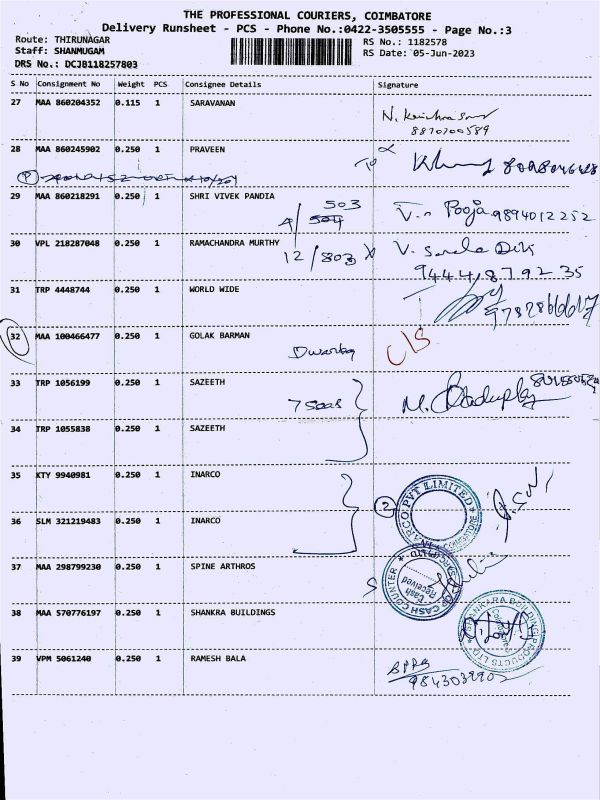 THE PROFESSIONAL COURIERS, COIMBATORE
Delivery Runsheet - PCS - Phone No.:0422-3505555 - Page No.:3
Route: THIRUNAGAR
Staff: SHANMUGAM
DRS No.: DCJB118257803
RS No.: 1182578
RS Date: 05-Jun-2023
S No Consignment No Weight PCS Consignee Details Signature
27 MAA 860204352 0.115 1 SARAVANAN
8870700589
28 MAA 860245902 0.250 1 PRAVEEN
29 MAA 860218291 0.250 1 SHRI VIVEK PANDIA
503
A/504
V.n Pooja 9894012252
30 VPL 218287048 0.250 1 RAMACHANDRA MURTHY
12/803
V. Sarala Devi
9444187923 5
31 TRP 4448744 0.250 1 WORLD WIDE
32 MAA 100466477 0.250 1 GOLAK BARMAN
Dwaraka
C/S
33 TRP 1056199 0.250 1 SAZEETH
7 Seas
34 TRP 1055838 0.250 1 SAZEETH
35 KTY 9940981 0.250 1 INARCO
2
INARCO PVT LIMITED
COIMBATORE
36 SLM 321219483 0.250 1 INARCO
37 MAA 298799230 0.250 1 SPINE ARTHROS
OP CASH COUNTER
Cash
Received
38 MAA 570776197 0.250 1 SHANKRA BUILDINGS
SHANKARA BUILDING PRODUCTS LTD
39 VPM 5061240 0.250 1 RAMESH BALA